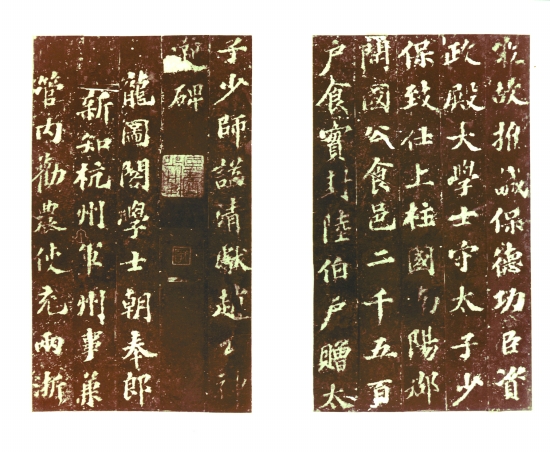 宋故推誠保德功臣資
政殿大學士守太子少
保致仕上柱國南陽郡
開國公食邑二千五百
户食實封陸伯户贈太
子少師謚清獻趙公神
道碑
龍圖閣學士朝奉郎
新知杭州軍州事兼
管内勸農使充兩浙